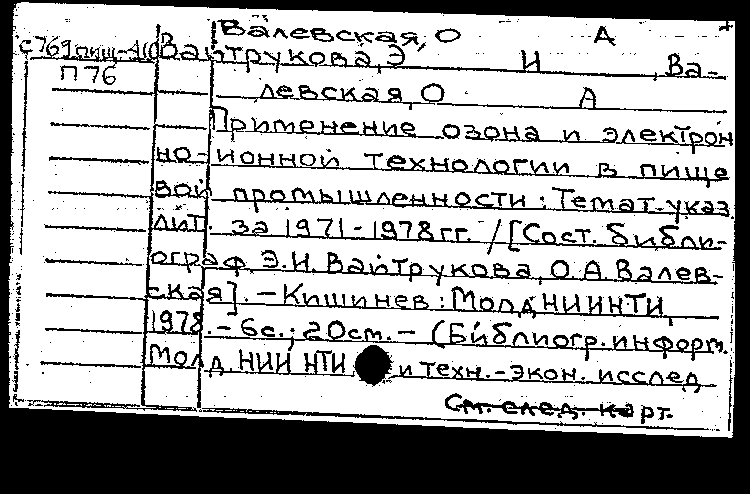 Валевская, О А
с769пищ-4(0 Вайтрукова, Э И , Ва-
П76 левская, О А
Применение озона и электрон
но-ионной технологии в пище
вой промышленности : Темат. указ.
лит. за 1971-1978 гг. / [Сост. библи-
ограф Э.И. Вайтрукова, О.А. Валев-
ская]. - Кишинев : МолдНИИНТИ,
1978. - 6 с. ; 20 см. - (Библиогр. информ.
Молд. НИИ НТИ и техн.-экон. исслед
См. след. карт.